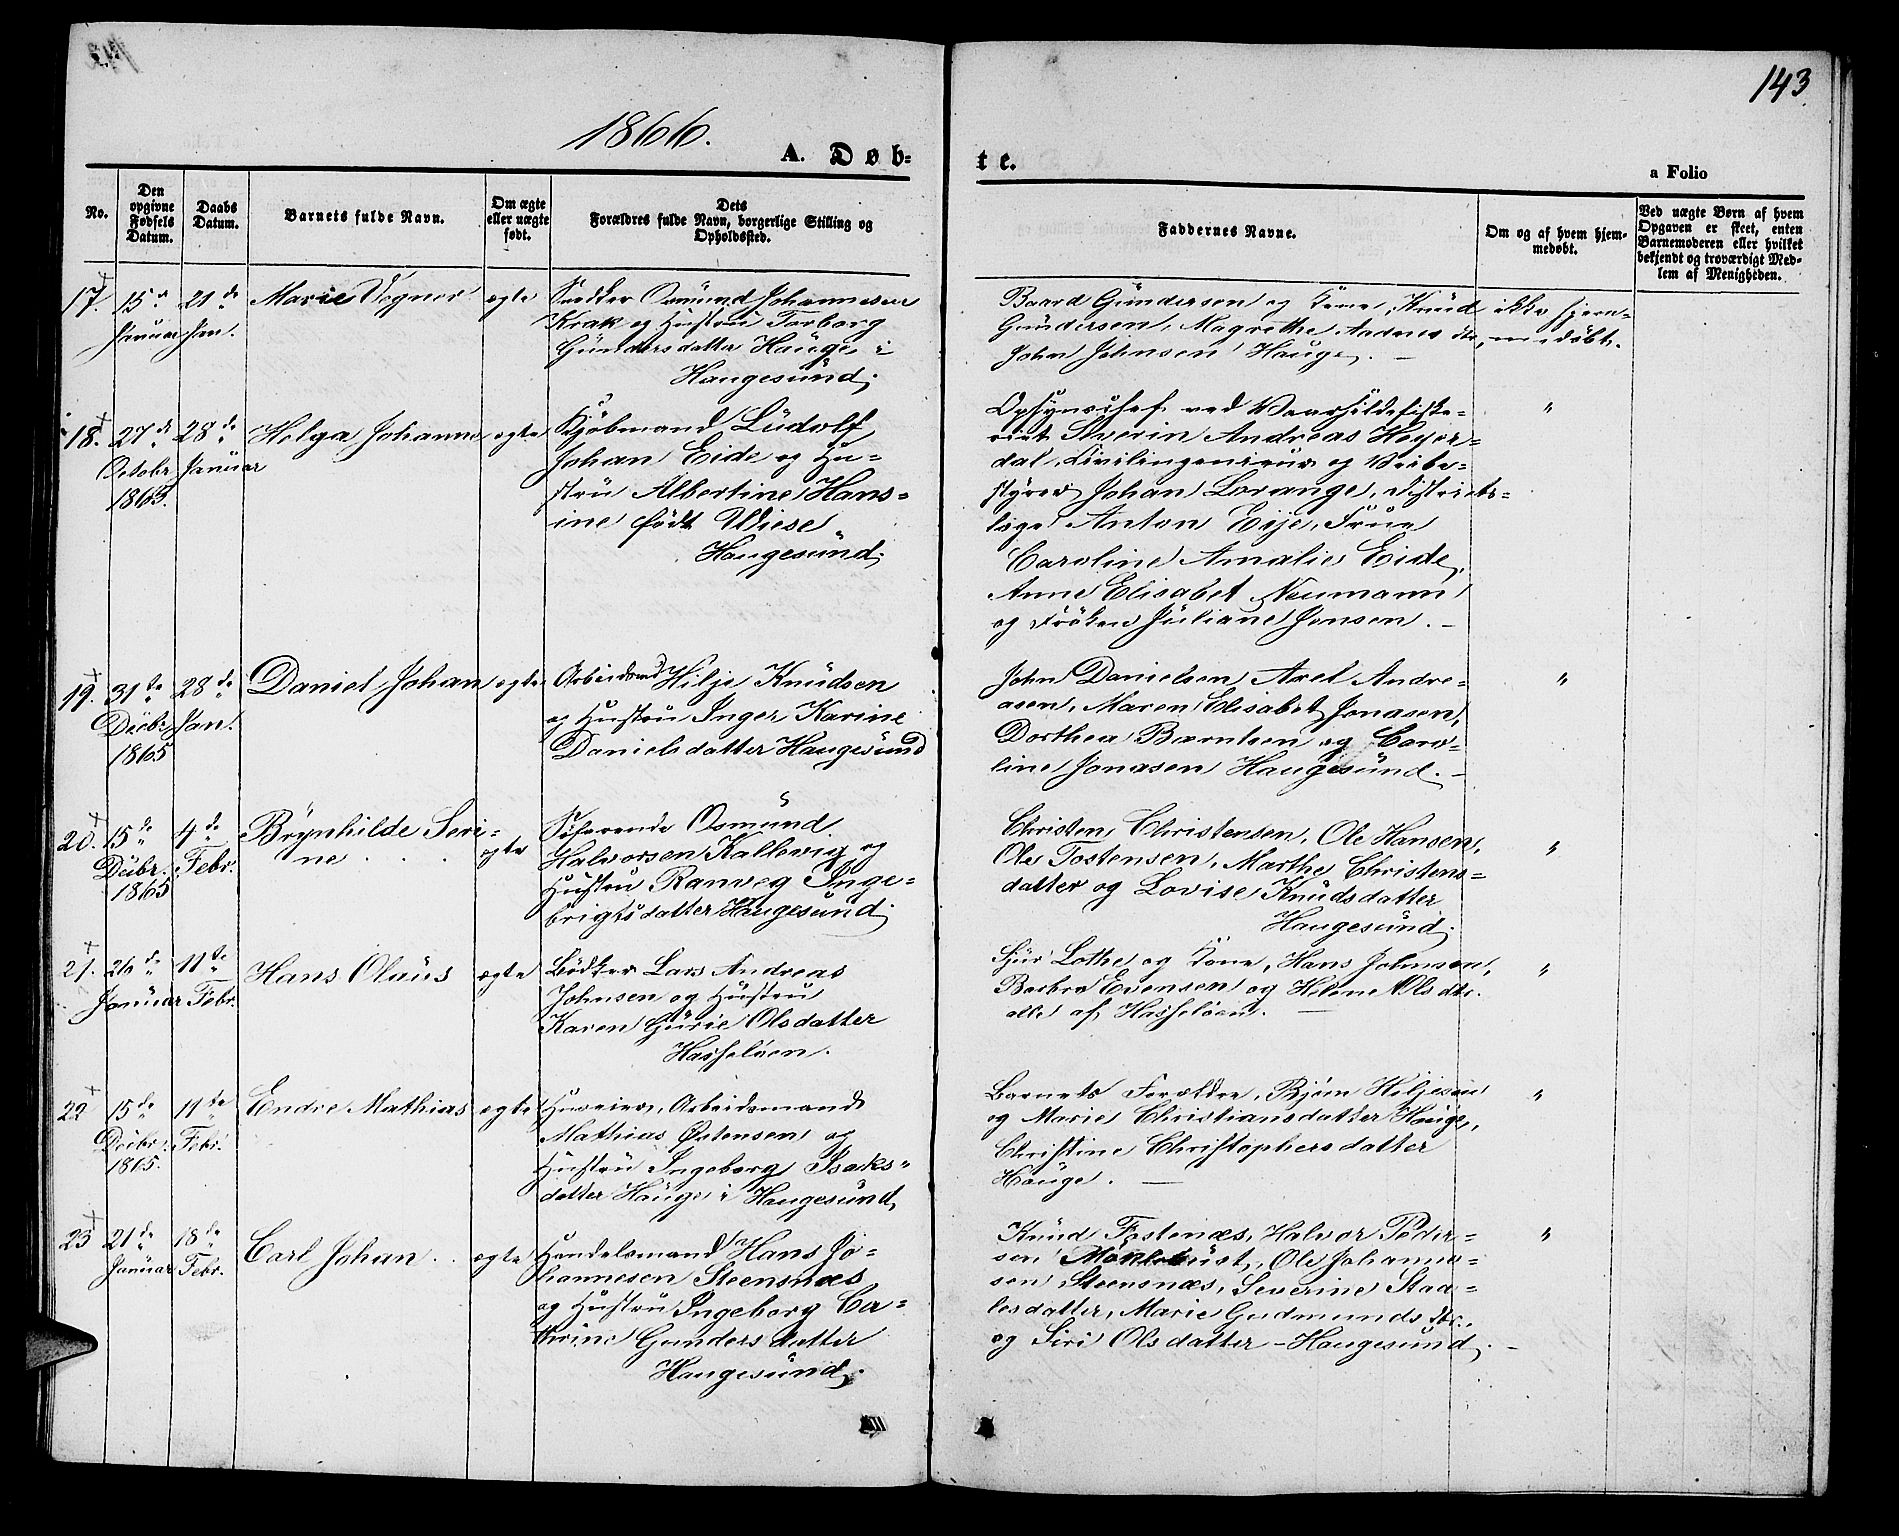 143
1866.
A. Døb-
te.
a Folio
No.
Den opgivne Fødsels Datum.
Daabs Datum.
Barnets fulde Navn.
Om ægte eller uægte født.
Dets Forældres fulde Navn, borgerlige Stilling og Opholdssted.
Faddernes Navne.
Om og af hvem hjemmedøbt.
Ved uægte Børn af hvem Opgaven er skeet, enten Barnemoderen eller hvilket bekjendt og troværdigt Medlem af Menigheden.
17.
15de
Januar
21de
Jan.
Marie Vegner
ægte
Snedker Osmund Johannesen
Krak og Hustru Torborg
Gundersdatter Hauge i
Haugesund.
Baard Gundersen og Kone, Knud
Gundersen, Magrethe Aadnes dtr,
John Johnsen Hauge. —
ikke hjem-
medøbt.
18.
27de
Octobr
1865.
28de
Januar
Helga Johanne
ægte
Kjøbmand Ludolf
Johan Eide og Hu-
stru Albertine Hans-
ine født Wiese
Haugesund.
Opsynschef ved Vaarsildefiske-
riet Severin Andreas Heyer-
dal, Civilingenieur og
styrer Johan Lorange, Districts-
læge Anton Eije, Frue
Caroline Amalie Eide,
Anne Elisabet Neumann
og Frøken Juliane Jensen. —
"
19.
31te
Decbr.
1865
28de
Jan.
Daniel Johan
ægte
Arbeidsmd Hilje Knudsen
og Hustru Inger Karine
Danielsdatter Haugesund
John Danielsen, Axel Andre-
asen, Maren Elisabet Jonasen,
Dorthea Bærntsen og Caro-
line Jonasen Haugesund. —
"
20.
15de
Decbr.
1865
4de
Febr.
Brynhilde Seri-
ne . . .
ægte
Søfarende Osmund
Halvorsen Kallevig og
Hustru Ranveg Inge-
brigtsdatter Haugesund.
Christen Christensen, Ole Hansen,
Ole Tostensen, Marthe Christens-
datter og Lovise Knudsdatter
Haugesund.
"
21.
26de
Januar
11te
Febr.
Hans Olaus
ægte
Bødker Lars Andreas
Johnsen og Hustru
Karen Gurie Olsdatter
Hasseløen.
Sjur Lothe og Kone, Hans Johnsen,
Barbro Evensen og Helene Ols dtr.
alle af Hasseløen. —
"
22
15de
Decbr.
1865.
11te
Febr.
Endre Mathias
ægte
Huuseier, Arbeidsmand
Mathias Østensen og
Hustru Ingeborg Isaks-
datter Hauge i Haugesund,
Barnets Forældre, Bjørn Hiljesen
og Marie Christiansdatter Hauge,
Christine Christophersdatter
Hauge. —
"
23
21de
Januar
18de
Febr.
Carl Johan . .
ægte
Handelsmand Hans Jo-
hannesen Steensnæs
og Hustru Ingeborg Ca-
thrine Gundersdatter
Haugesund.
Knud Fostenæs, Halvor Peder-
sen Ole Johanne-
sen Steensnæs, Severine Staa-
lesdatter, Marie Gudmunds dtr.,
og Siri Olsdatter – Haugesund. —
"